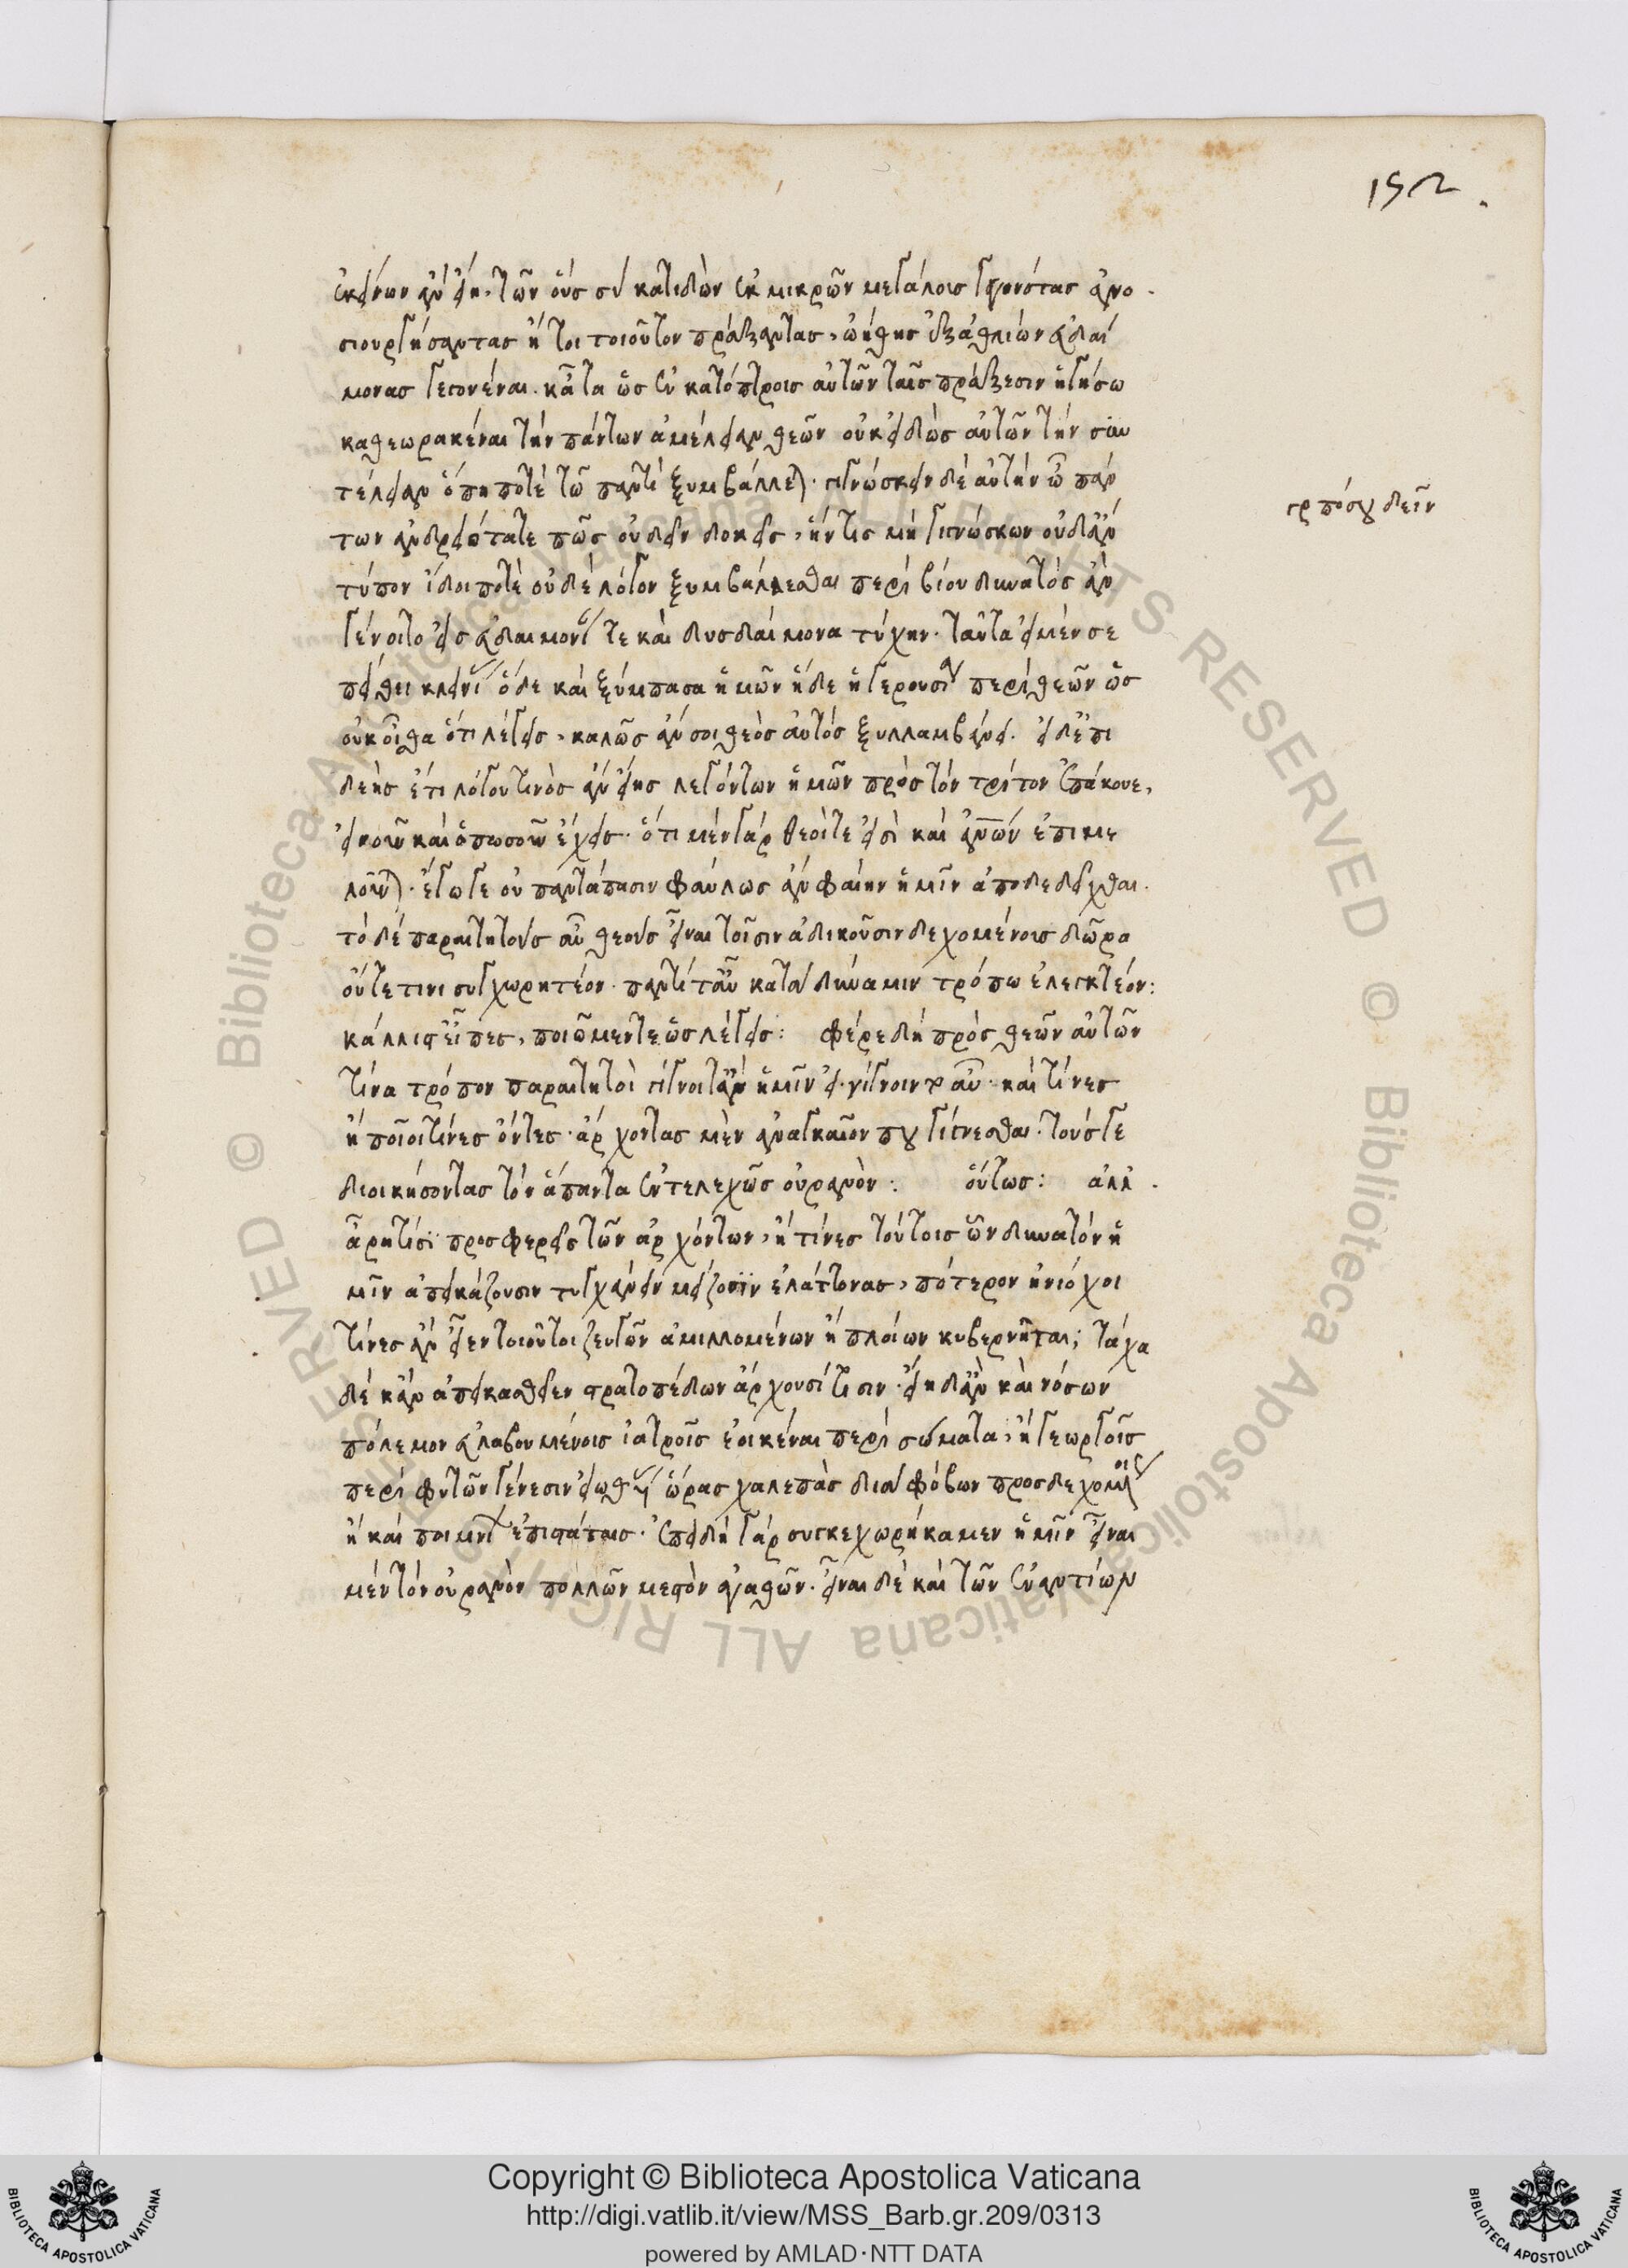 152.
ἐκείνων ἂν εἴη, τῶν οὓς σὺ κατιδὼν ἐκ μικρῶν μεγάλους γεγονότας ἀνο
σιουργήσαντας ἤ τι τοιοῦτον πράξαντας, ᾠήθης ἐξ ἀθλίων εὐδαί
μονας γεγονέναι. κᾆτα ὡς ἐν κατόπτροις αὐτῶν ταῖς πράξεσιν ἡγήσω
καθεωρακέναι τὴν πάντων ἀμέλειαν θεῶν οὐκ εἰδὼς αὐτῶν τὴν συν
τέλειαν ὅπη ποτὲ τῷ παντὶ ξυμβάλλεται. γιγνώσκειν δὲ αὐτὴν ὦ πάν
των ἀνδρειότατε πῶς οὐ δεῖν δοκεῖς, ἥν τις μὴ γιγνώσκων οὐδ' ἂν
τύπον ἴδοι ποτὲ οὐδὲ λόγον ξυμβάλλεσθαι περὶ βίου δυνατὸς ἂν
γένοιτο εἰς εὐδαιμονίαν τε καὶ δυσδαίμονα τύχην. ταῦτα εἰ μέν σε
πείθει κλεινίας ὅδε καὶ ξύμπασα ἡμῶν ἥδε ἡ γερουσία περὶ θεῶν ὡς
οὐκ οἶσθα ὅτι λέγεις, καλῶς ἄν σοι θεὸς αὐτὸς ξυλλαμβάνοι. εἰ δ' ἐπι
δεὴς ἔτι λόγου τινὸς ἂν εἴης λεγόντων ἡμῶν πρὸς τὸν τρίτον ἐπάκουε,
εἰ νοῦν καὶ ὁπωσοῦν ἔχεις. ὅτι μὲν γὰρ θεοί τε εἰσὶ καὶ ἀνθρώπων ἐπιμε
λοῦνται. ἔγωγε οὐ παντάπασιν φαύλως ἂν φαίην ἡμῖν ἀποδεδεῖχθαι.
τὸ δὲ παραιτητοὺς αὖ θεοὺς εἶναι τοῖσιν ἀδικοῦσιν δεχομένοις δῶρα
οὔτε τινι συγχωρητέον. παντί τ' αὖ κατὰ δύναμιν τρόπῳ ἐλεγκτέον:
κάλλιστ' εἶπες, ποιῶμέν τε ὡς λέγεις: φέρε δὴ πρὸς θεῶν αὐτῶν
τίνα τρόπον παραιτητοὶ γίγνοιντ' ἂν ἡμῖν εἰ γίγνοιντο αὖ. καὶ τίνες
ἢ ποῖοί τινες ὄντες. ἄρχοντας μὲν ἀναγκαῖον που γίγνεσθαι. τούς γε
διοικήσοντας τὸν ἅπαντα ἐντελεχῶς οὐρανόν: οὕτως: ἀλλ
ἆρα τίσι προσφερεῖς τῶν ἀρχόντων, ἢ τίνες τούτοις ὧν δυνατὸν ἡ
μῖν ἀπεικάζουσιν τυγχάνειν μείζοσιν ἐλάττονας, πότερον ἡνίοχοι
τινες ἂν εἶεν τοιοῦτοι ζευγῶν ἁμιλλομένων ἢ πλοίων κυβερνῆται; τάχα
δὲ κἂν ἀπεικασθεῖεν στρατοπέδων ἄρχουσί τισιν. εἴη δ' ἂν καὶ νόσων
πόλεμον εὐλαβουμένοις ἰατροῖς ἐοικέναι περὶ σώματα, ἢ γεωργοῖς
περὶ φυτῶν γένεσιν εἰωθυίας ὥρας χαλεπὰς διὰ φόβων προσδεχομένοις
ἢ καὶ ποιμνίων ἐπιστάταις. ἐπειδὴ γὰρ συγκεχωρήκαμεν ἡμῖν εἶναι
μὲν τὸν οὐρανὸν πολλῶν μεστὸν ἀγαθῶν. εἶναι δὲ καὶ τῶν ἐναντίων
Copyright © Biblioteca Apostolica Vaticana
http://digi.vatlib.it/view/MSS_Barb.gr.209/0313
powered by AMLAD·NTT DATA
BIBLIOTECA APOSTOLICA VATICANA
BIBLIOTECA APOSTOLICA VATICANA
© Biblioteca Apostolica Vaticana ALL RIGHTS RESERVED © Biblioteca Apostolica Vaticana ALL RIGHTS RESERVED